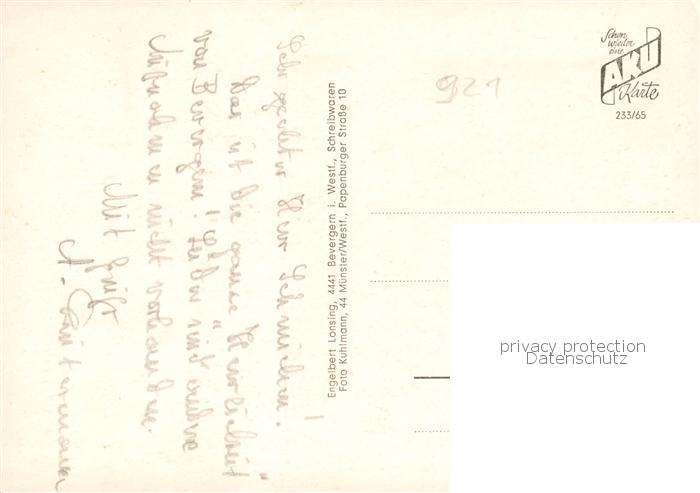 Sehr geehrter Herr Schmücker!
Das ist die ganze "Herrlichkeit"
von Bevergern! Leider sind andere
Aufnahmen nicht vorhanden.
Mit Gruß
A.
Engelbert Lonsing, 4441 Bevergern i. Westf., Schreibwaren
Foto Kuhlmann, 44 Münster/Westf., Papenburger Straße 10
921
Schon
wieder
eine
AKU
Karte
233/65
privacy protection
Datenschutz